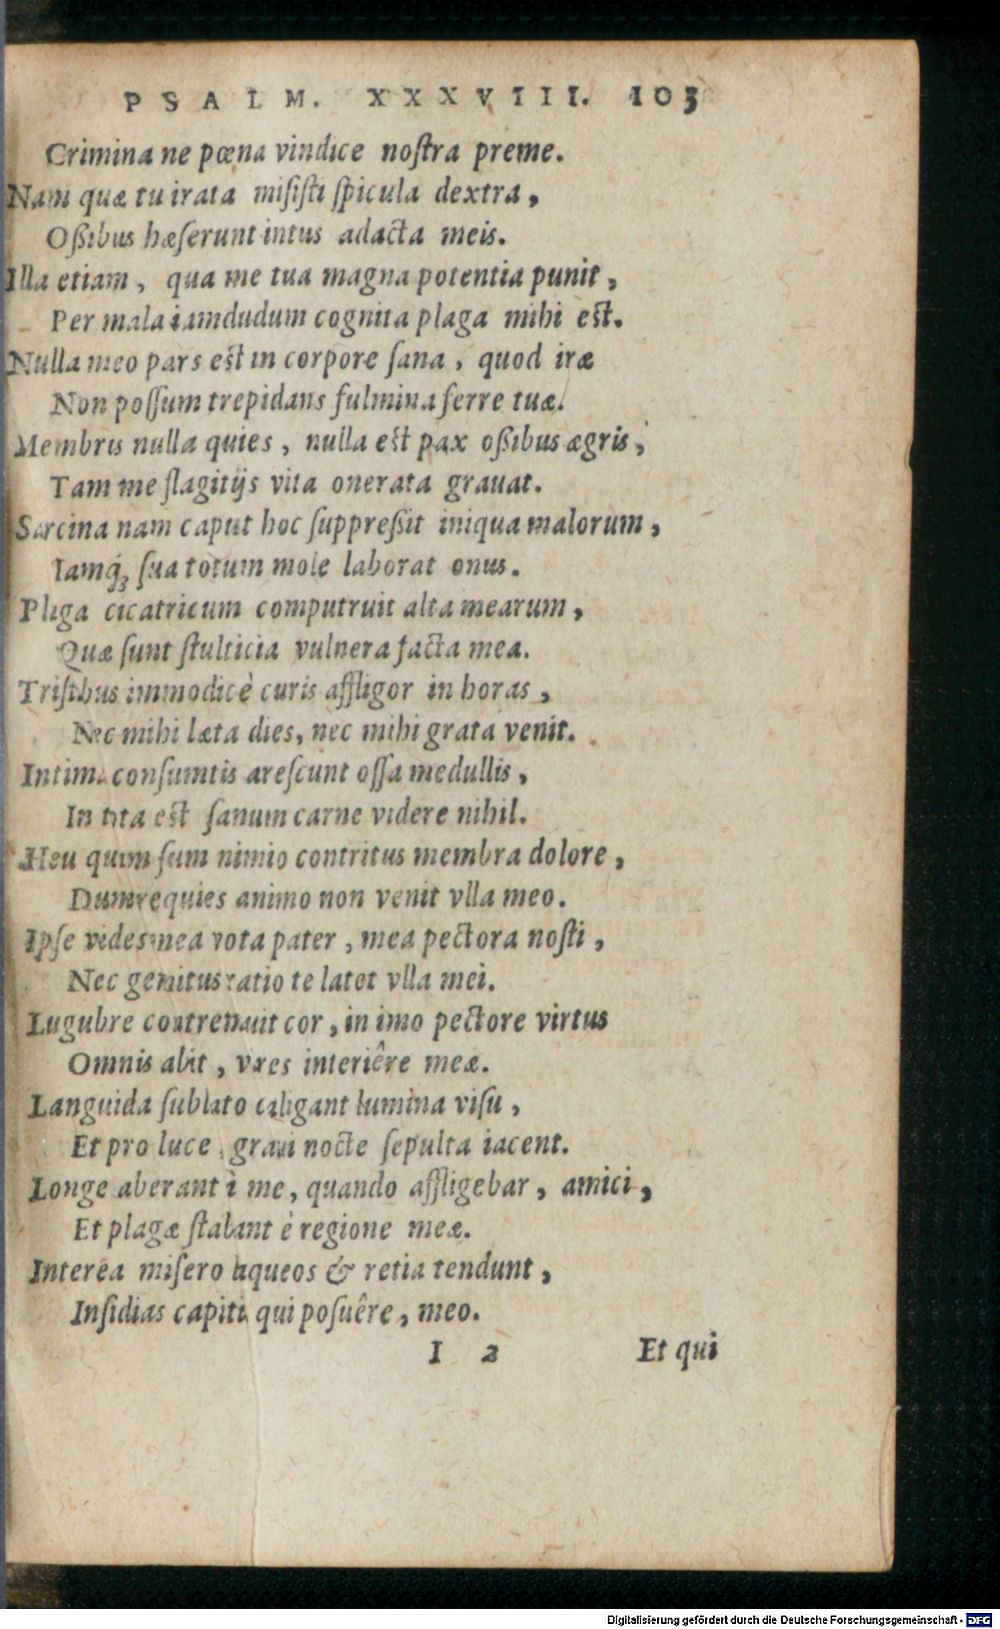 PSALM. XXXVIII. 103
Crimina ne pœna vindice noſtra preme.
Nam quæ tu irata miſiſti ſpicula dextra,
Oßibus hæſerunt intus adacta meis.
Illa etiam, qua me tua magna potentia punit,
Per mala iamdudum cognita plaga mihi eſt.
Nulla meo pars eſt in corpore ſana, quod iræ
Non poſſum trepidans fulmina ferre tuæ.
Membris nulla quies, nulla eſt pax oßibus ægris,
Tam me flagitijs vita onerata grauat.
Sarcina nam caput hoc ſuppreßit iniqua malorum,
Iamq́ꝫ ſua totum mole laborat onus.
Plaga cicatricum computruit alta mearum,
Quæ ſunt ſtulticia vulnera facta mea.
Triſtibus immodicè curis affligor in horas,
Nec mihi læta dies, nec mihi grata venit.
Intima conſumtis areſcunt oſſa medullis,
In tota eſt ſanum carne videre nihil.
Heu quàm ſum nimio contritus membra dolore,
Dum requies animo non venit vlla meo.
Ipſe vides mea vota pater, mea pectora noſti,
Nec gemitus ratio te latet vlla mei.
Lugubre contremuit cor, in imo pectore virtus
Omnis abit, vires interiêre meæ.
Languida ſublato caligant lumina viſu,
Et pro luce graui nocte ſepulta iacent.
Longe aberant à me, quando affligebar, amici,
Et plagæ ſtabant è regione meæ.
Interea miſero laqueos & retia tendunt,
Inſidias capiti qui poſuêre, meo.
I 2 Et qui
Digitalisierung gefördert durch die Deutsche Forschungsgemeinschaft - DFG